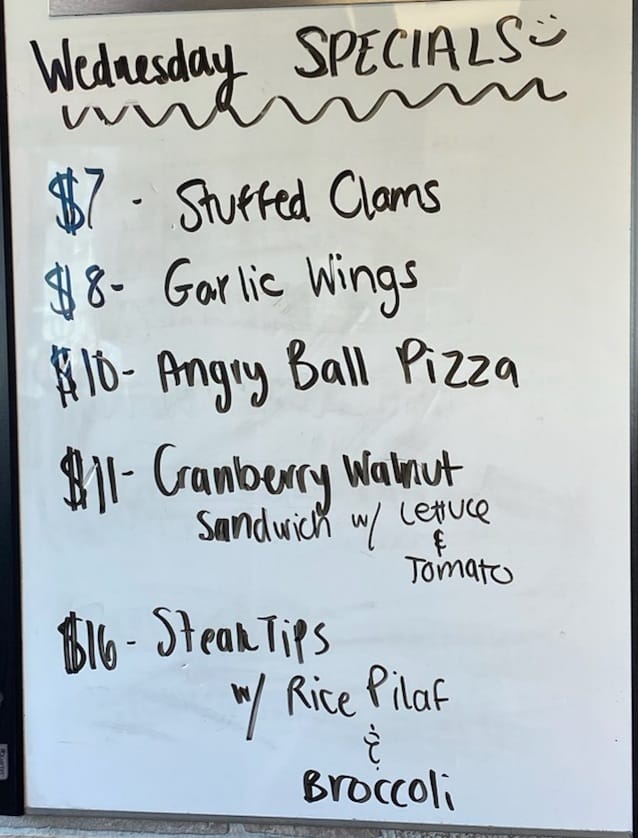 Wednesday SPECIALS
$7 - Stuffed Clams
$8- Garlic Wings
$10- Angry Ball Pizza
$11- Cranberry Walnut
Sandwich w/ Lettuce
&
Tomato
$16- Steak Tips
w/ Rice Pilaf
&
Broccoli